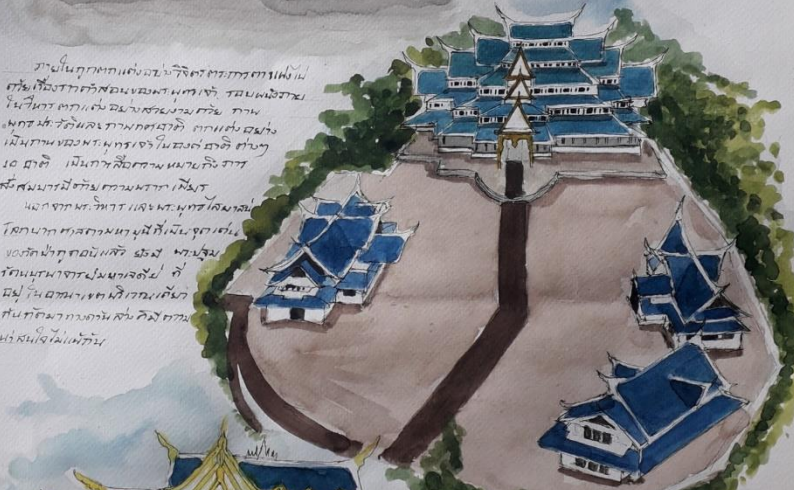 ภายในถูกตกแต่งอย่างวิจิตรตระการตา
ด้วยเรื่องราวคำสอนของพระพุทธเจ้า รอบผนังภาย
ในวิหารตกแต่งอย่างสวยงามด้วย ภาพ
พุทธประวัติและภาพทศชาติ ตกแต่งอย่าง
เป็นภาพของพระพุทธเจ้าในองค์ชาติต่างๆ
10 ชาติ เป็นการสื่อความหมายถึงการ
สั่งสมบารมีด้วยความพากเพียร
นอกจากพระวิหาร และพระพุทธไสยาสน์
โลกนาถศาสดามหามุนีที่เป็นจุดเด่น
ของวัดป่าภูก้อนแล้ว ยังมี พระปฐม
รัตนบูรพาจารย์มหาเจดีย์ ที่
อยู่ในอาณาเขตบริเวณเดียว
กันถัดมาทางด้าน
น่าสนใจไม่แพ้กัน